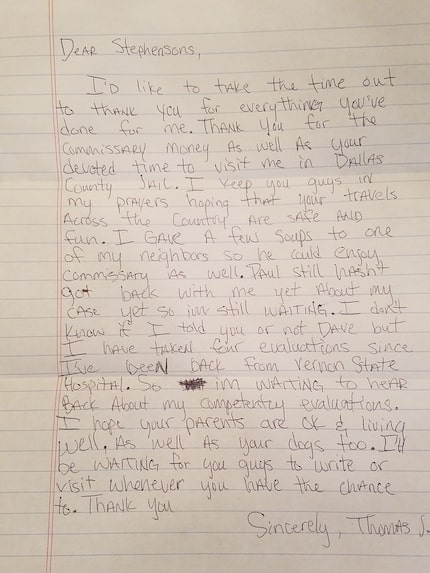 Dear Stephensons,
I'd like to take the time out
to thank you for everything you've
done for me. Thank you for the
commissary money as well as your
devoted time to visit me in Dallas
County Jail. I keep you guys in
my prayers hoping that your travels
across the country are safe and
fun. I gave a few soups to one
of my neighbors so he could enjoy
commissary as well. Paul still hasn't
got back with me yet about my
case yet so im still waiting. I don't
know if I told you or not Dave but
I have taken four evaluations since
I've been back from Vernon State
Hospital. So im waiting to hear
back about my competency evaluations.
I hope your parents are ok & living
well. As well as your dogs too. I'll
be waiting for you guys to write or
visit whenever you have the chance
to. Thank you
Sincerely, Thomas J.